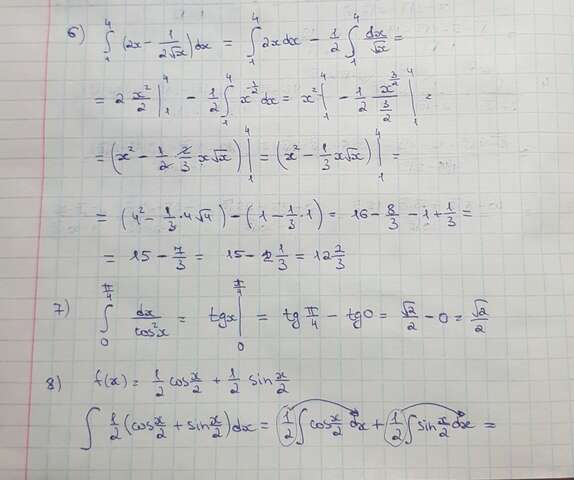 6) ∫₁⁴ (2x - 1/(2√x)) dx = ∫₁⁴ 2x dx - 1/2 ∫₁⁴ dx/√x =
= 2 x²/2 |₁⁴ - 1/2 ∫₁⁴ x^(-1/2) dx = x² |₁⁴ - 1/2 x^(3/2)/(3/2) |₁⁴ =
= (x² - 1/2 · 2/3 x√x) |₁⁴ = (x² - 1/3 x√x) |₁⁴ =
= (4² - 1/3 · 4√4) - (1 - 1/3 · 1) = 16 - 8/3 - 1 + 1/3 =
= 15 - 7/3 = 15 - 2 1/3 = 12 2/3
7) ∫₀^(π/4) dx/cos²x = tgx |₀^(π/4) = tg π/4 - tg0 = √2/2 - 0 = √2/2
8) f(x) = 1/2 cos x/2 + 1/2 sin x/2
∫ 1/2 (cos x/2 + sin x/2) dx = 1/2 ∫ cos x/2 dx + 1/2 ∫ sin x/2 dx =